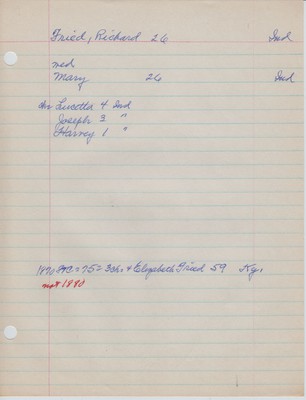 Fried, Richard 26 Ind
med
Mary 26 Ind
ch Lucetta 4 Ind
Joseph 3 "
Harvey 1 "
1870 = 75 = 3 ch. & Elizabeth Fried 59 Ky.
not 1880